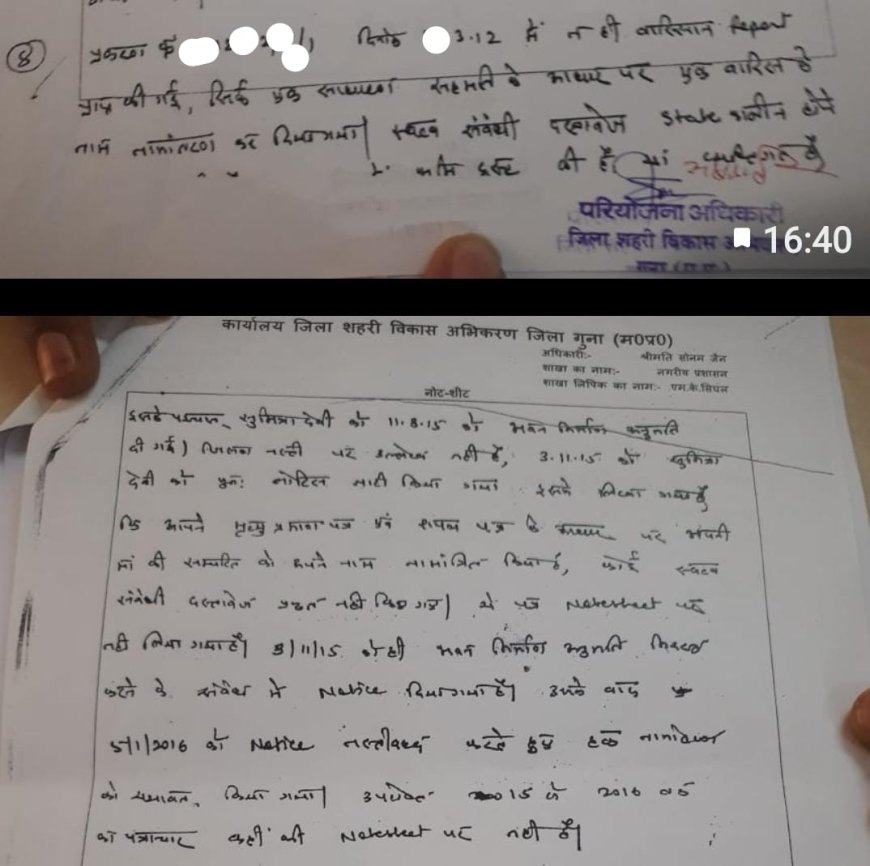 ⑧ प्रकरण क्रं दिनांक 3.12 में न ही वारिसान Report
प्राप्त की गई, सिर्फ एक साधारण सहमति के आधार पर एक वारिस के
नाम नामांतरण कर दिया गया। स्वत्व संबंधी दस्तावेज State कालीन होने
की है।
परियोजना अधिकारी
जिला शहरी विकास
16:40
कार्यालय जिला शहरी विकास अभिकरण जिला गुना (म0प्र0)
अधिकारी:- श्रीमति सोनम जैन
शाखा का नाम:- नगरीय प्रशासन
शाखा लिपिक का नाम:- एम.के.सियल
नोट-शीट
इसके पश्चात्, सुमित्रा देवी को 11.8.15 को भवन निर्माण अनुमति
दी गई) जिसका नस्ती पर उल्लेख नहीं है, 3.11.15 को सुमित्रा
देवी को पुनः नोटिस जारी किया गया इसमें लिखा गया है
कि आपने मृत्यु प्रमाण पत्र एवं शपथ पत्र के आधार पर अपनी
मां की सम्पत्ति को अपने नाम नामांत्रित किया है, कोई स्वत्व
संबंधी दस्तावेज प्रस्तुत नहीं किए गए। ये पत्र Notesheet पर
नहीं लिया गया है। 3/11/15 को ही भवन निर्माण अनुमति निरस्त
करने के संबंध में Notice दिया गया है। उसके बाद
5/1/2016 को Notice नस्तीबद्ध करते हुए हक नामांतरण
को यथावत् किया गया। उपरोक्त 2015 से 2016 तक
का पत्राचार कहीं भी Notesheet पर नहीं है।